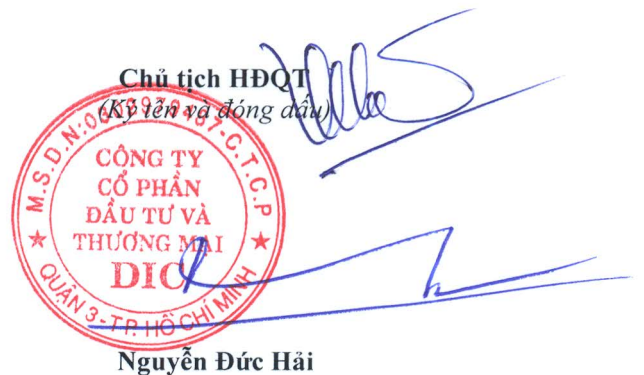 Chủ tịch HĐQT
(Ký tên và đóng dấu)
CÔNG TY
CỔ PHẦN
ĐẦU TƯ VÀ
THƯƠNG MẠI
DIC
QUẬN 3-TP. HỒ CHÍ MINH
Nguyễn Đức Hải